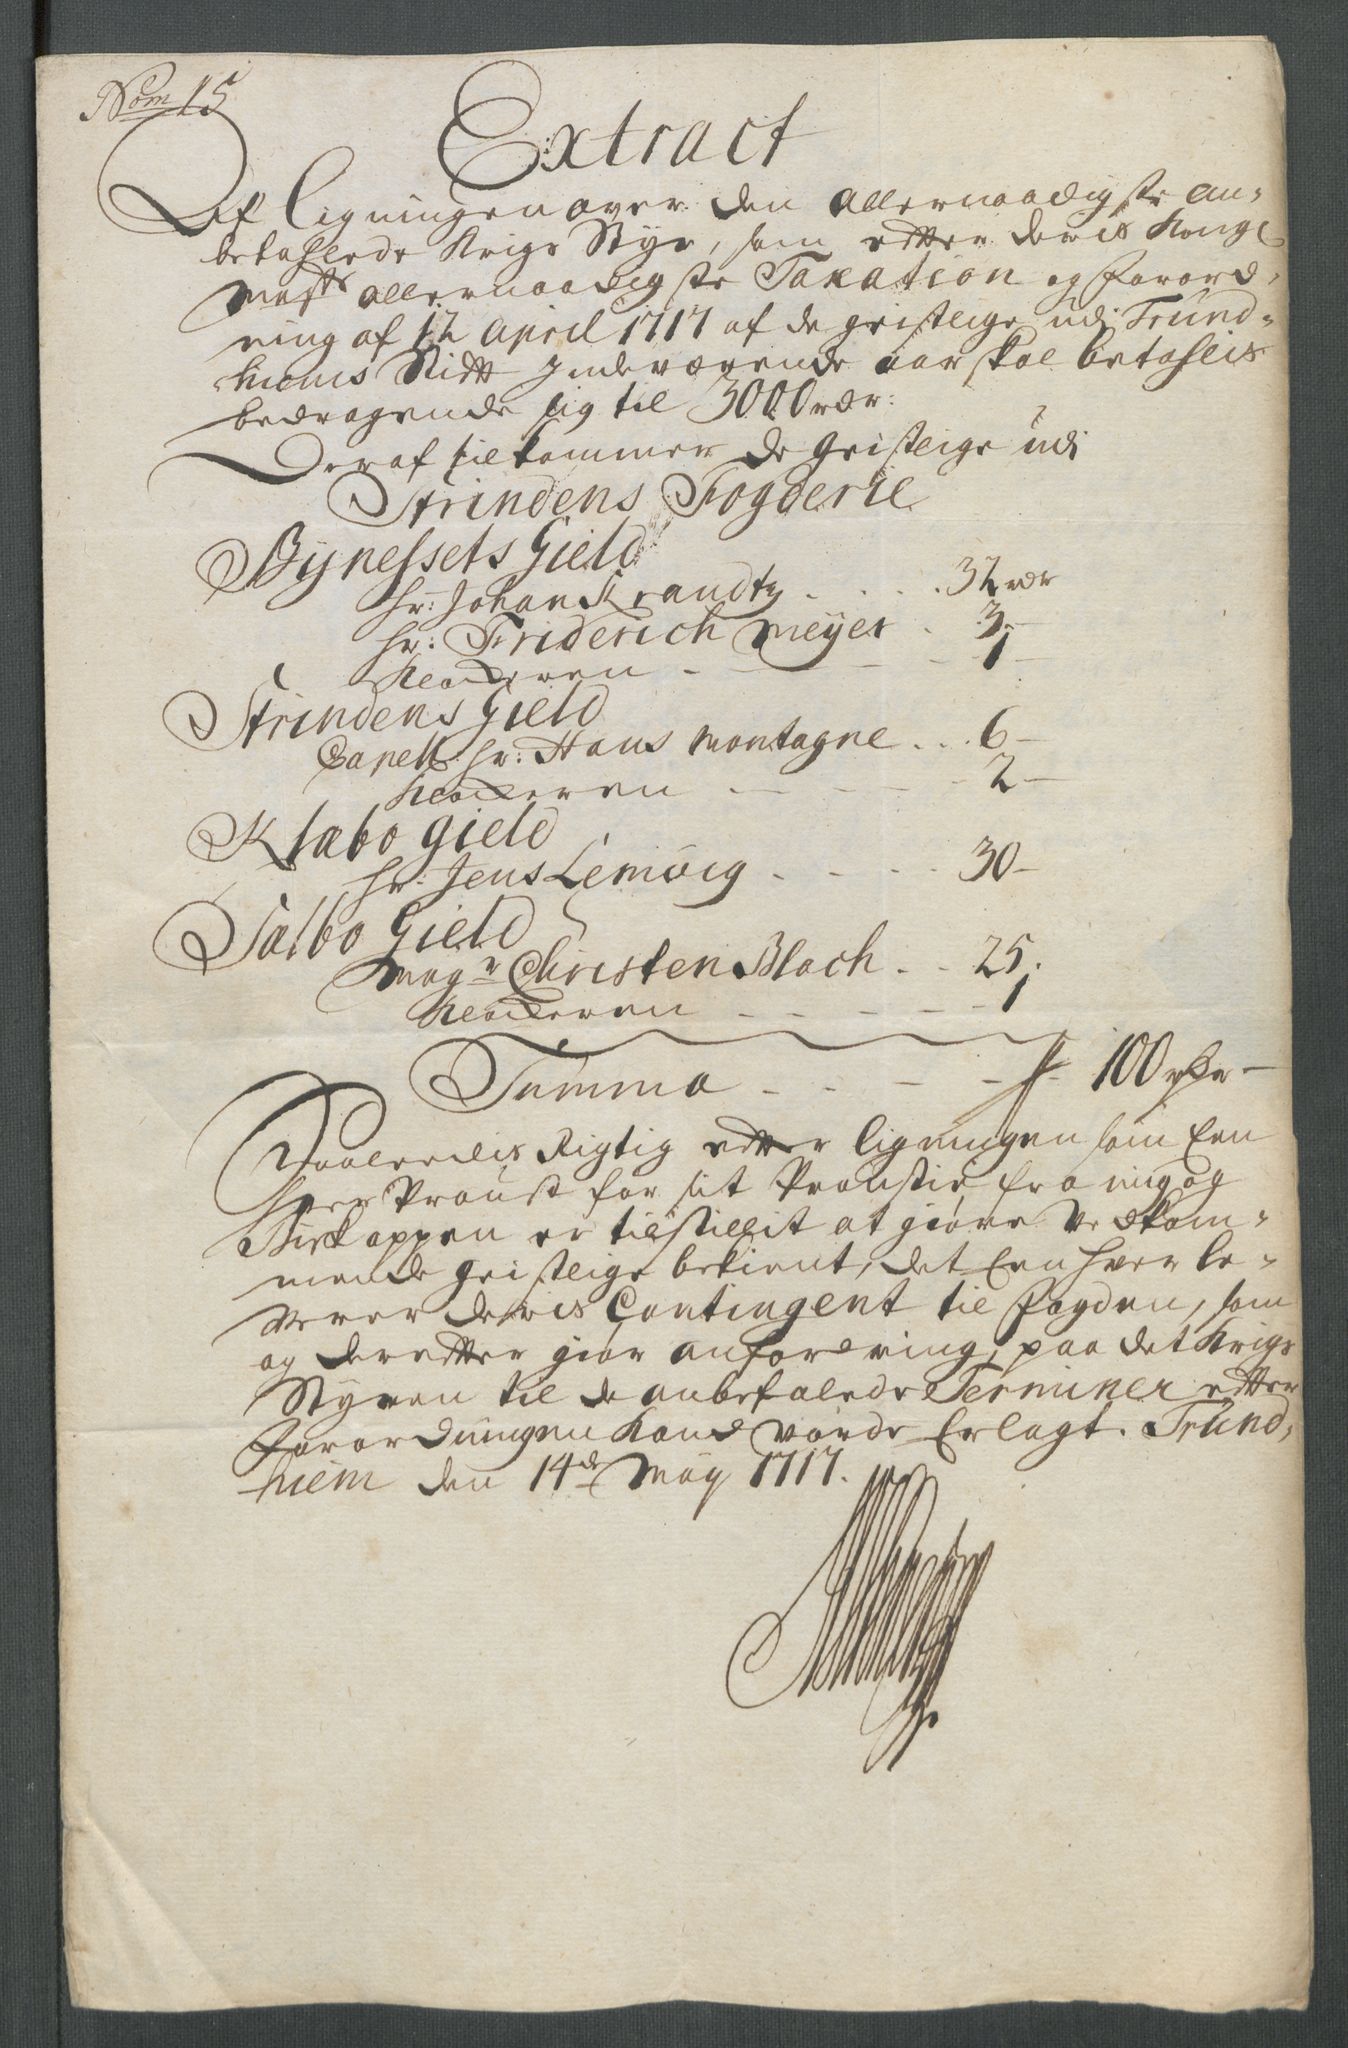 Nom 15
Extract
Af ligningen over den allernaadigste an-
befahlede Krigs Styr, som efter deris Kongl
Maÿts allernaadigste Taxation og forord-
ning af 12 april 1717 af de geistlige udi Trund-
hiems Stift Indeværende aar skal betahlis
bedragende sig til 3000 rdr:
Deraf tilkommer de geistlige udi
Strindens Fogderie
Bynessets Gield
hr: Johan Krandtz . . . . 32 rdr
hr: Friderich Meyer . 3 -
Klocheren - - - - - 1 -
Strindens Gield
Capell: hr: Hans Montagne . . . 6 -
Klocheren - - - - 2 -
Klæbo gield
hr: Jens Lemvig - - - - 30 -
Sælbo Gield
Magr Christen Blach . . . 25.
Klocheren - - - - - 1
Summa - - - - 100 rdr -
Saaledis Rigtig efter ligningen som Een
hver Proust for sit Proustie fra mig og
Biskoppen er tilstillit at giøre Vedkom-
mende geistlige bekient, det Een hver le-
verer deris Contingent til fogden, som
og derefter giør anfordring, paa det Krigs
Styren til de anbefalede Terminer efter
forordningen kand vorde Erlagt. Trund-
hiem den 14de Maÿ 1717.